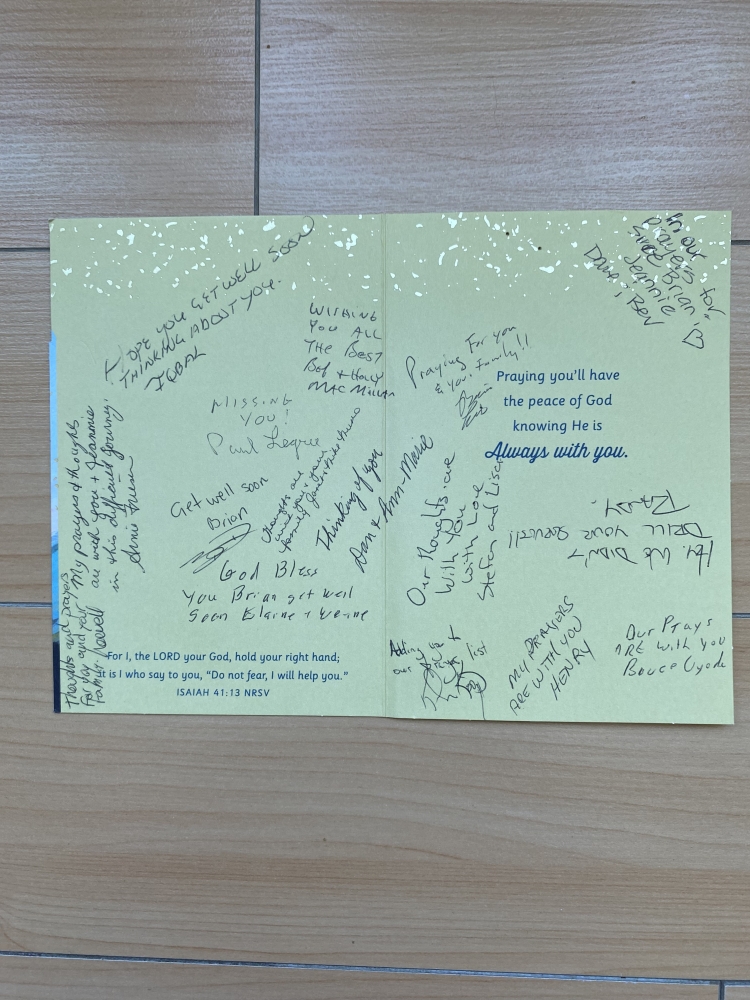 HOPE YOU GET WELL SOON
THINKING ABOUT YOU.
IQBAL
WISHING
YOU ALL
THE BEST
Bof + Holly
MAC Millan
MISSING
YOU!
Paul Legree
My prayers & thoughts
are with you + Jeannie
in this difficult journey.
Get well soon
Brian
thoughts are
with you + your
family
Thinking of you
Dan & Ann-Marie
God Bless
You Brian get well
Soon Elaine + Weine
Thoughts and prayers
For you and your
Family
For I, the LORD your God, hold your right hand;
it is I who say to you, “Do not fear, I will help you.”
ISAIAH 41:13 NRSV
In our
Prayers for
Brian
Jeannie
Dawn & Bev
Praying For you
& your family!!
Praying you’ll have
the peace of God
knowing He is
Always with you.
Our thoughts are
With You
With Love
Stefan and Lisa
WE DIDN'T
DRILL YOUR
RANDY.
our list
MY PRAYORS
ARE WITH YOU
HENRY
Our Prays
ARE with you
Bruce